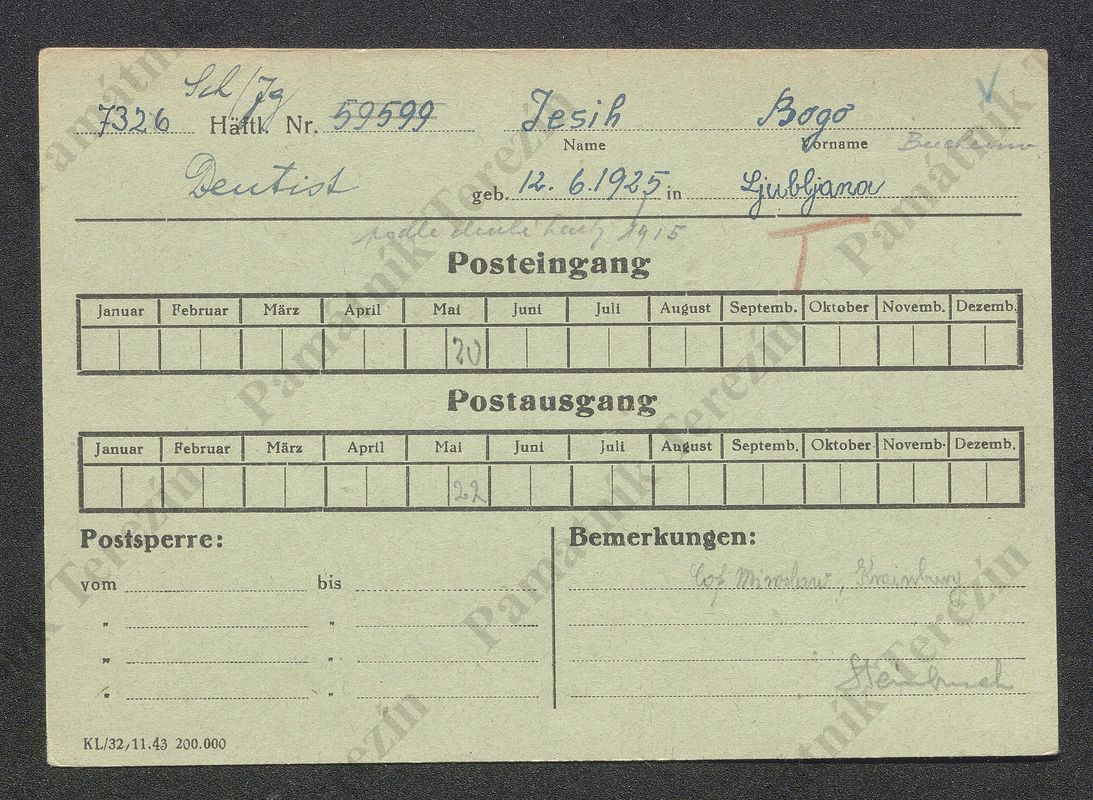 Sch/Jg
7326 Häftl. Nr. 59599 Jesih Bogo
Name Vorname
Dentist geb. 12. 6. 1925 in Ljubljana
podle druhé karty 1915
T
Posteingang
Januar Februar März April Mai Juni Juli August Septemb. Oktober Novemb. Dezemb.
20
Postausgang
Januar Februar März April Mai Juni Juli August Septemb. Oktober Novemb. Dezemb.
22
Postsperre: Bemerkungen:
vom bis
Miroslaw, Krainburg
" "
" "
Steinbruch
" "
KL/32, 11.43 200.000
Památník Terezín